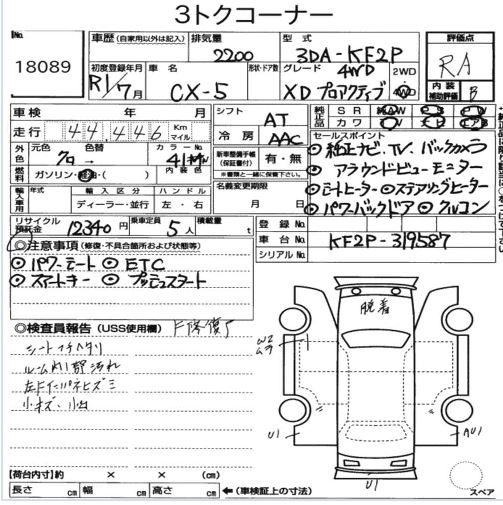 3トクコーナー
No. 18089
車歴(自家用以外は記入) 排気量 2200 型式 3DA-KF2P 評価点 RA
初度登録年月 R1/7月 車名 CX-5 形状・ドア数 グレード 4WD XDプロアクティブ 2WD 4WD 内装補助評価 B
車検 年 月 シフト AT 純正品 SR AW
走行 44,446 Km マイル 冷房 AAC カワ
外色 元色 クロ 色替 → カラーNo. 41W 内装色
燃料 ガソリン・軽油・( )
新車整備手帳(保証書付) 有・無
※書類と一緒に保管してください。
セールスポイント
純正ナビ.TV.バックカメラ
アラウンドビューモニター
シートヒーター ステアリングヒーター
パワーバックドア クルコン
輸入車用 年式 輸入区分 ディーラー・並行 ハンドル 左・右
名義変更期限 月 日
リサイクル預託金 12340円 乗車定員 5人 積載量 t
登録No.
車台No. KF2P-319587
シリアルNo.
◎注意事項(修復・不具合箇所および状態等)
パワーシート ETC
スマートキー プッシュスタート
◎検査員報告(USS使用欄) F修復了
シートフチヘタリ
ルーム内1部汚れ
左Fインパネヒズミ
小キズ・小凹
脱着
W2
ムラ
U1
AU1
U1
【荷台内寸】約 × × (cm)
長さ cm 幅 cm 高さ cm ←(車検証上の寸法)
スペア